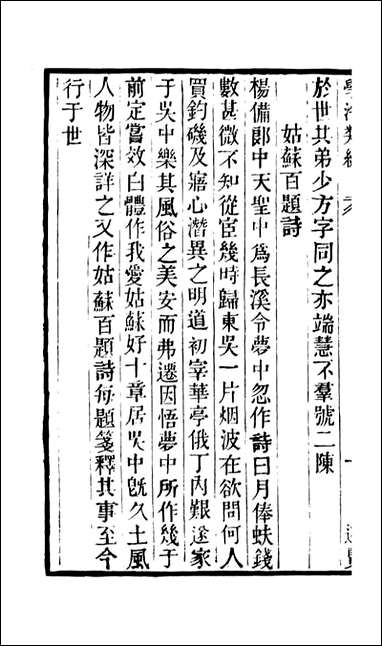 於世其弟少方字同之亦端慧不羣號二陳
姑蘇百題詩
楊備郎中天聖中爲長溪令夢中忽作詩曰月俸蚨錢
數甚微不知從宦幾時歸東吳一片烟波在欲問何人
買釣磯及寤心潛異之明道初宰華亭俄丁内艱遂家
于吳中樂其風俗之美安而弗遷因悟夢中所作幾于
前定嘗效白體作我愛姑蘇好十章居吳中旣久土風
人物皆深詳之又作姑蘇百題詩每題箋釋其事至今
行于世